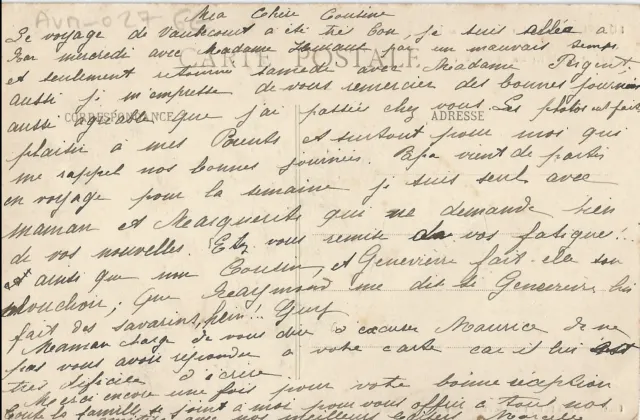 Avn-027
Ma Chère Cousine
Le voyage de Vautcourt a été très bon, je suis allée a
mercredi avec Madame par un mauvais temps
et seulement retourné samedi avec Madame
CARTE POSTALE
aussi je m'empresse de vous remercier des bonnes journées
CORRESPONDANCE
ADRESSE
aussi agréable que j'ai passées chez vous. Les photos ont fait
plaisir a mes Parents et surtout pour moi qui
me rappel nos bonnes journées. Papa vient de partir
en voyage pour la semaine je suis seul avec
maman et Marguerite qui me demande bien
de vos nouvelles. Etes vous remise de vos fatigue!..
et ainsi que mon Cousin, et Geneviève fait-elle son
mouchoir; que Raymond me dit si Geneviève lui
fait des savarins, hein!!
Maman charge de vous dire d'excuser Maurice de ne
pas vous avoir répondre a votre carte car il lui est
très dificile d'écrire
Merci encore une fois pour votre bonne réception
Toute la famille se joint a moi pour vous offrir a tous nos
meilleurs